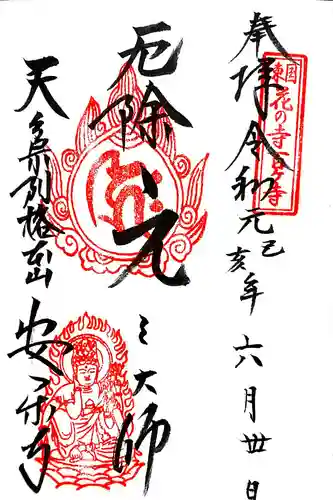 奉拝 令和元己亥年 六月卅日
東国花の寺百ヶ寺
厄除 元三大師
天台宗別格本山
安楽寺